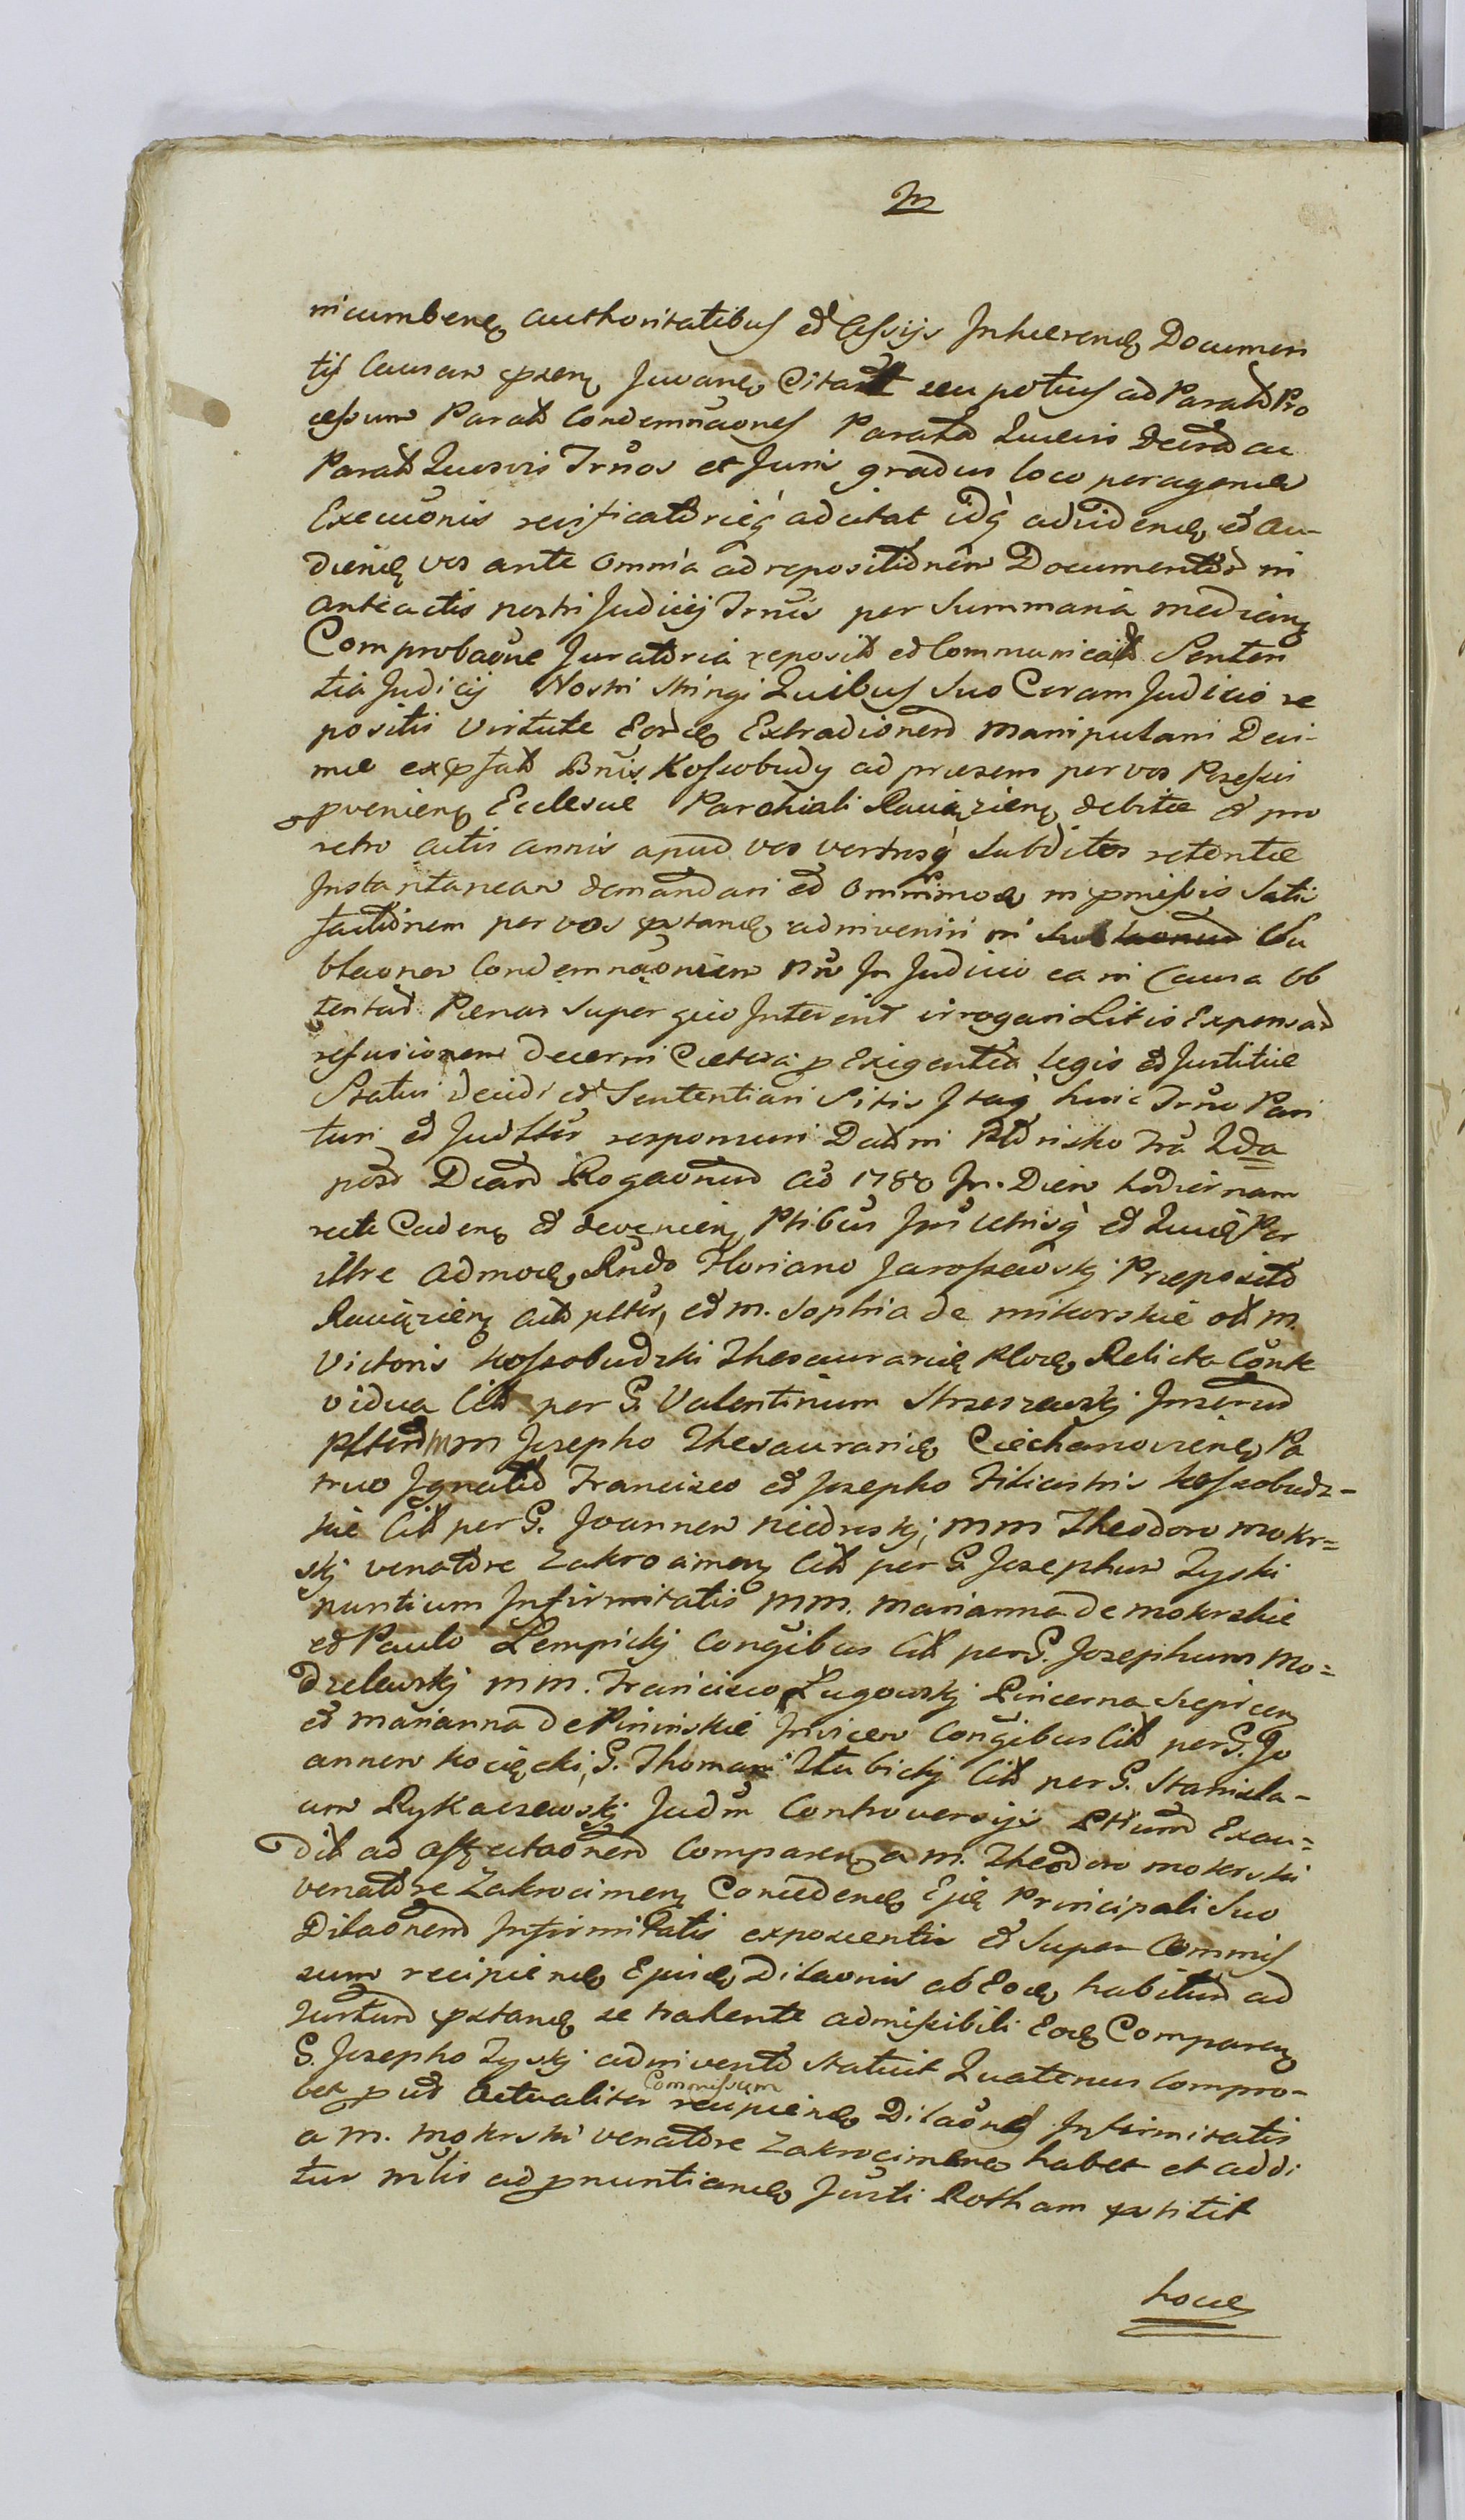 m
incumbend authoritatibus et Cessijs Inhaerend Documen
tis Causam praesen Juvand Citat seu potius ad Parat Pro
cessum Parat Condemnaones Parata Quaevis Decreta ac
Parat Quosvis Trnos et Juris gradus loco peragenda
Execuonis reijficatorieq adcitat idq ad videnda et Au-
diend vos ante omnia ad repositionem Documentor in
anteactis nostri Judicij Trnis per Summaria median
Comprobaone Juratoria reposit et Communicat Senten
tia Judicij Nostri stringi Quibus suo Coram Judicio re
positis virtute Eord Extradionem manipularis Deci-
mae ex praefat Bnis Kossobudy ad praesens per vos Possessis
pvenien Ecclesiae Parochiali Raciązien debitae et pro
retro actis annis apud vos vestrosq subditos retentae
Instantaneam demandari et omnimod in pmissis Satis
factionem per vos prstand adinveniri in Su
blaonem Condemnaonum Nro In Judicio ea in Causa Ob
tentar Paenas super quo Intererit irrogari Litis Expensar
refusionem decerni Caetera p Exigentia legis et Justitiae
Statui decidi et Sententiari Sitis Itaq huic Trno Pari
turi et Judltr responsuri Dat in Płońsko Fra 2da
post Dcam Rogaonum Ao 1788 In Diem hodiernam
recte Caden et devenien Ptibus Ipis Utrisq et Quid Per
illre Admod Rndo Floriano Jaroszewskj Praeposito
Raciązien Act pltr, et M. Sophia de mikorskie olt M.
Victoris Kossobudzki Thesaurarid Ploc Relicta Conte
vidua Cit per G. Valentinum Strzeszewskj Inserend
pltend MM Josepho Thesaurario Ciechanoviend Pa
truo Ignatio Francisco et Josepho Filiastris Kossobudz-
kie Cit per G. Joannem Niedroskj, MM Theodoro mokr=
skj venatore Zakroaimen Cit per G. Josephum Zyski
nuntium Infirmitatis MM. Marianna de mokrskie
et Paulo Lempickj Congibus Cit per G. Josephum Mo=
dzelewskj MM. Francisco Ługowskj Pincerna Sieprcen
et Marianna de Pininskie Invicem Congibus Cit per G. Jo
annem Kocięcki, G. Thoma Ztubickj Cit per G. Stanisla-
um Rykaczewskj Judm Controversijs Ptium Exau=
dit ad affectaonem Comparen a M. Theodoro mokrski
venatore Zakrocimen Concedend Ejd Principali Suo
Dilaonem Infirmitatis exposcentis et super Commis
sum recipiend Ejusd Dilaonis ab Eod habitum ad
Jurtum prstand se trahente admissibili Eod Comparen
G. Josepho Zyskj adinvento statuit Quatenus Compro-
bet p ut Actualiter Commissum recipiend Dilaones Infirmitatis
a M. Mokrski venatore Zakrocimen habet et addi
tus mlis ad pnuntiand Jurti Rotham prstitit
hocce